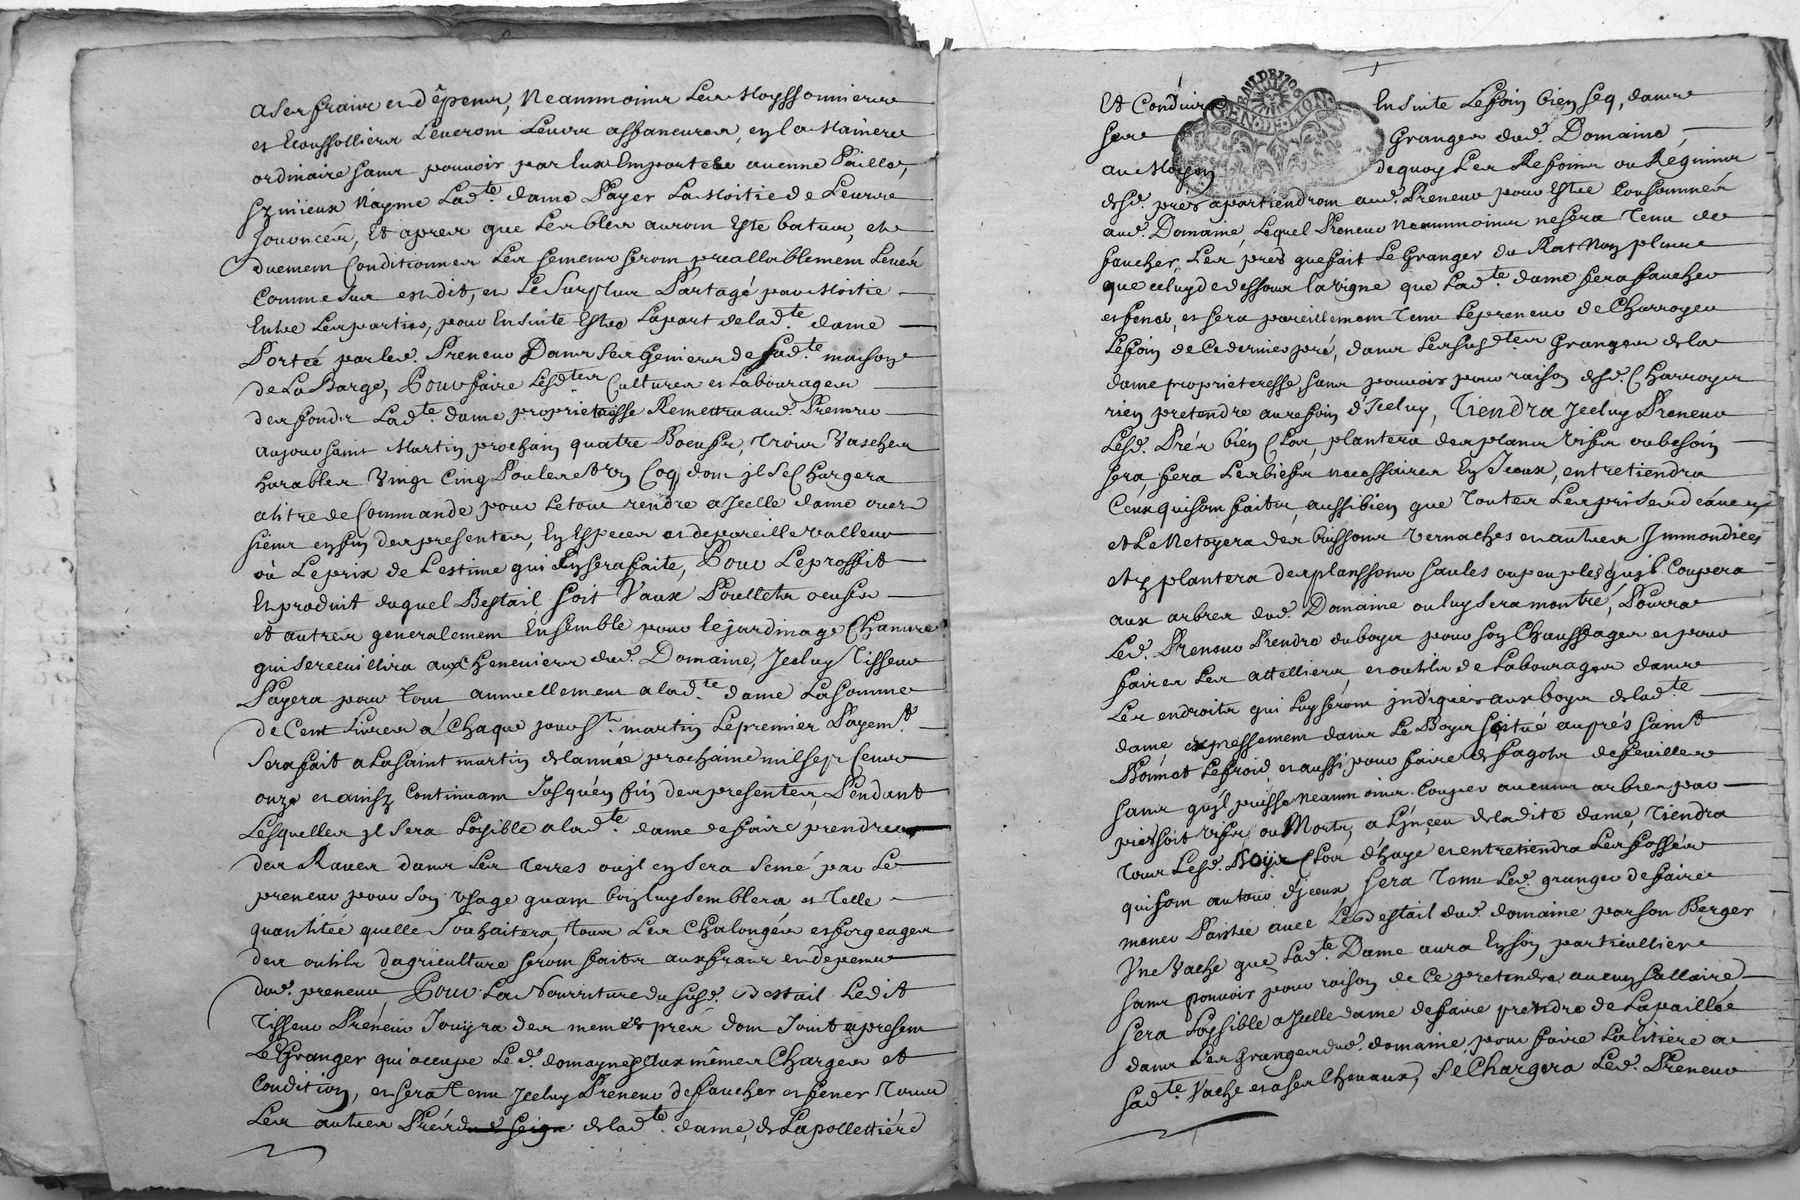 a ses fraix et dépens, Neammoins Les Moyssonnieres
et Ecoussolliers Leveront Leurs affaneures, en la Maniere
ordinaire sans pouvoir par Eux Emporter aucune Paille,
ny mieux Náyme Lad.te dame Payer La Moitié de Leurs
Jouvncés, Et apres que Les bles auront Este batus, et
duement Conditionnes Les semens seront preallablement Levés
Comme sus est dit, et Le Surplus Partagé par Moitie
Entre Les parties, pour Ensuite Estre Lapart de lad.te dame
Portée par led. Preneur Dans ses Greniers de sad.te maison
de La Barge, Pour faire Lesd.tes Cultures et Labourages
des fonds Lad.te dame proprietaresse Remettra aud. Preneur
au jour saint Martin prochain quatre Boeufs, trois Vaches
harables Vingt Cinq Poules et Un Coq dont jl se Chargera
atitre de Commande pour Letout rendre a Jcelle dame ou es
siens en fin des presentes, En Especes et de pareille valleur
où Leprix de Lestime qui En sera faite, Pour Leproffit
Et produit duquel Bestail soit Vaux Poulletz oeufs
et autres generalement Ensemble pour le jardinage Chanvre
qui se ceuillira aux Chenevieres dud. Domaine, Jceluy Tisseur
Payera pour tout annuellement a lad.te dame La somme
de Cent Livres á Chaque jour S.t martin Lepremier Payem.t
Sera fait a La saint martin de lannée prochaine mil sept Cents
onze et ainsy Continuant Jusquén fin des presentes, Pendant
Lesquelles jl sera Loysible a lad.te dame de faire prendre
des Raves dans Les terres ou jl en sera semé par Le
preneur pour son usage quant bon luy semblera et Telle
quantitée quelle Souhaitera, tous Les Chalongés et forgeages
des outils dagriculture seront faits aux fraix et depens
dud. preneur, Pour La Nourriture du susd. Bestail Ledit
Tisseur Preneur Jouyra des memes prés dont Jouit apresent
Le Granger qui occupe Led. domayne aux mêmes Charges et
Condition, et sera tenu Jceluy Preneur de faucher et fener tous
Les autres Prés de lad.te dame, de Lapollettiére
Et Conduire Ensuite Lefoin bien Seq, dans
Ses Granges dud. Domaine,
GEN. DE. LION
au Moyen dequoy Les Refoins ou Reguins
desd. prés apartiendront aud. Preneur pour Estre Consommés
aud. Domaine, Lequel Preneur Neammoins ne sera tenu de
faucher, Les prés que fait Le Granger du Rat Non plus
que celuy de dessous la vigne que Lad.te dame fera faucher
et fener, et sera pareillement tenu Lepreneur de Charroyer
Lefoin de Ce dernier pré, dans Les susd.tes Granges de la
dame proprieteresse sans pouvoir pour raison desd. Charroyes
rien pretendre au refoin d'Jceluy, Tiendra Jceluy Preneur
Lesd. Prés bien Clos, plantera des plans vifs ou besoin
sera, fera Les biefs necessaires En Jceux, entretiendra
Ceux qui sont faits, aussi bien que toutes Les prises d'eau
et Le Netoyera des buissons vernaches et autres Jmmondices
et y plantera des planssons saules ou peuples qu'jl Coupera
aux arbres dud. Domaine ou luy sera montré, Pourra
Led. Preneur Prendre du boys pour son Chauffage et pour
faire Les attelliers et outils de Labourages dans
Les endroits qui Luy seront jndiqués aux boys de lad.te
dame expressement dans Le Boys scitué auprés saint
Bonnet Lefroid, et aussi pour faire de fagots de feuilles
sans qu'jl puisse Neammoins Couper aucuns arbres par
pied soit vifs ou Morts, a Linçeu de ladite dame, Tiendra
tous Lesd. Boys Clos d'haye et entretiendra Les fossés
qui sont autour d'jceux sera tenu Led. granger de faire
mener Paistre avec Le Bestail dud. domaine par son Berger
Une Vache que Lad.te Dame aura En son particulliere
sans pouvoir pour raison de Ce pretendre aucun sallaire,
sera Loysible a Jcelle dame de faire prendre de La paille
dans Les Granges dud. domaine pour faire La litiere a
sad.te Vache et a ses Chevaux, Se Chargera Led. Preneur